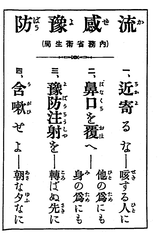 流感豫防
(内務省衛生局)
一、近寄るな──咳する人に
二、鼻口を覆へ──他の爲にも
身の爲にも
三、豫防注射を──轉ばぬ先に
四、含嗽せよ──朝な夕なに